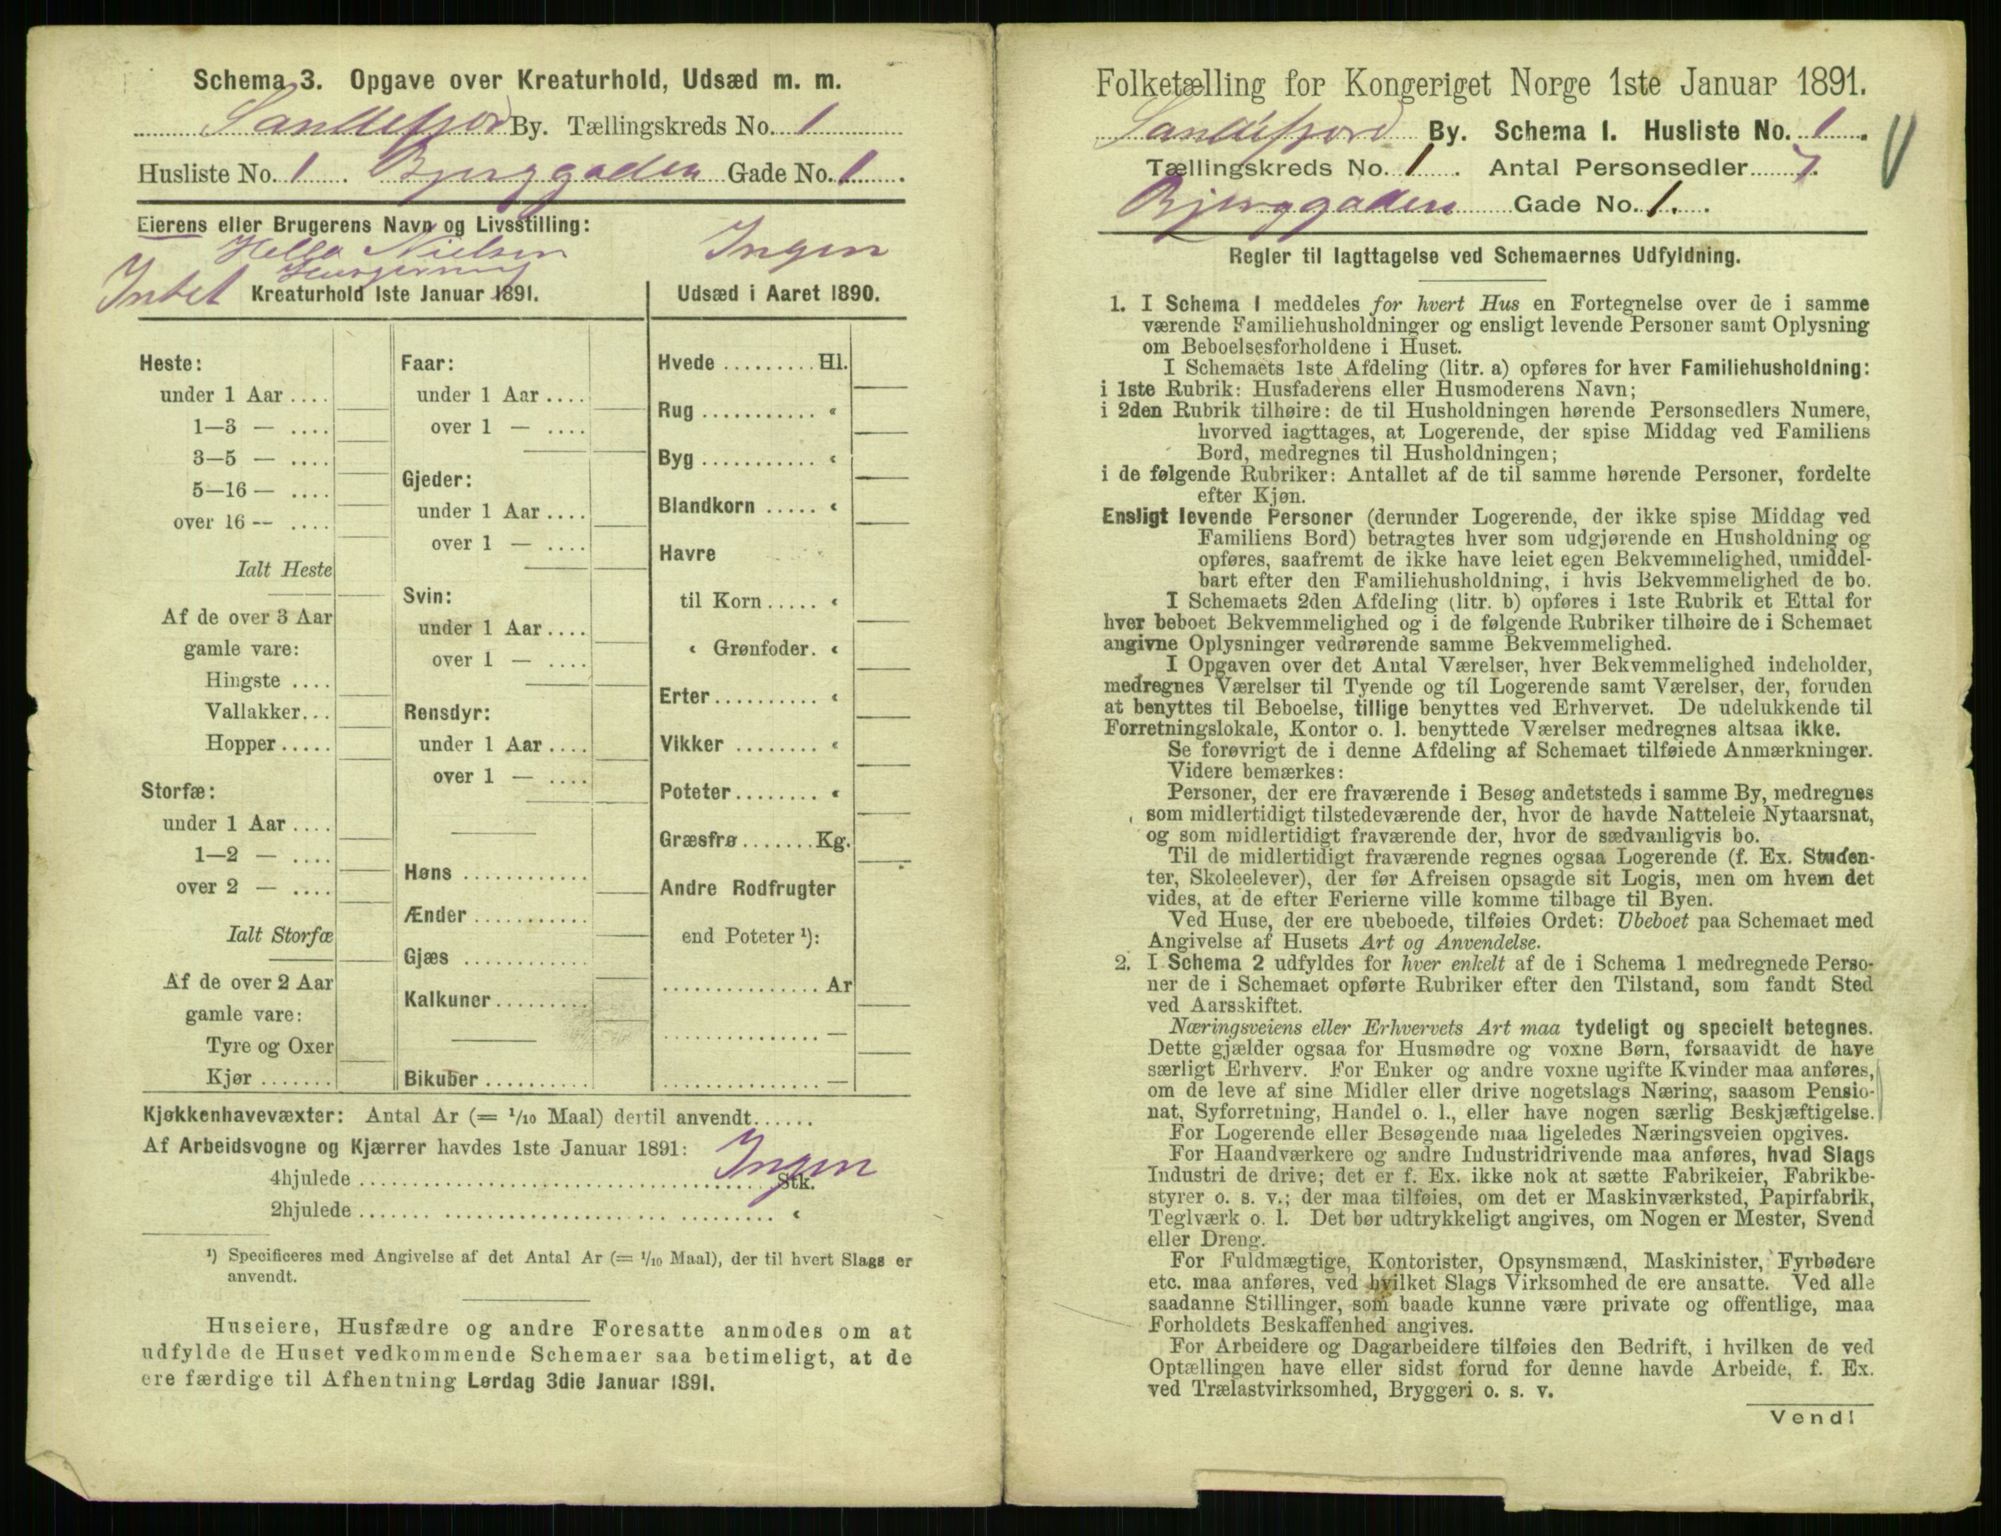 Schema 3. Opgave over Kreaturhold, Udsæd m. m.
Sandefjord By. Tællingskreds No. 1
Husliste No. 1. Bjerggaden Gade No. 1.
Eierens eller Brugerens Navn og Livsstilling:
Nielsen
Ingen
Intet
Kreaturhold 1ste Januar 1891.
Udsæd i Aaret 1890.
Heste:
under 1 Aar ....
1—3 — ....
3—5 — ....
5—16 — ....
over 16 -- ....
Ialt Heste
Af de over 3 Aar
gamle vare:
Hingste ....
Vallakker...
Hopper.....
Storfæ:
under 1 Aar ....
1—2 — ....
over 2 — ....
Ialt Storfæ
Af de over 2 Aar
gamle vare:
Tyre og Oxer
Kjør .......
Faar:
under 1 Aar ....
over 1 — ....
Gjeder:
under 1 Aar ....
over 1 — ....
Svin:
under 1 Aar ....
over 1 — ....
Rensdyr:
under 1 Aar ....
over 1 — ....
Høns ............
Ænder ...........
Gjæs ............
Kalkuner.........
Bikuber ..........
Hvede ......... Hl.
Rug ........... “
Byg ........... “
Blandkorn ..... “
Havre
til Korn ..... “
“ Grønfoder. “
Erter.......... “
Vikker ........ “
Poteter........ “
Græsfrø ....... Kg.
Andre Rodfrugter
end Poteter ¹):
............... Ar
............... —
............... —
Kjøkkenhavevæxter: Antal Ar (= 1/10 Maal) dertil anvendt......
Af Arbeidsvogne og Kjærrer havdes 1ste Januar 1891: Ingen
4hjulede ........................................ Stk.
2hjulede ........................................ “
¹) Specificeres med Angivelse af det Antal Ar (= 1/10 Maal), der til hvert Slags er
anvendt.
Huseiere, Husfædre og andre Foresatte anmodes om at
udfylde de Huset vedkommende Schemaer saa betimeligt, at de
ere færdige til Afhentning Lørdag 3die Januar 1891.
Folketælling for Kongeriget Norge 1ste Januar 1891.
Sandefjord By. Schema 1. Husliste No. 1.
Tællingskreds No. 1. Antal Personsedler 7.
Bjerggaden Gade No. 1.
Regler til Iagttagelse ved Schemaernes Udfyldning.
1. I Schema 1 meddeles for hvert Hus en Fortegnelse over de i samme
værende Familiehusholdninger og ensligt levende Personer samt Oplysning
om Beboelsesforholdene i Huset.
I Schemaets 1ste Afdeling (litr. a) opføres for hver Familiehusholdning:
i 1ste Rubrik: Husfaderens eller Husmoderens Navn;
i 2den Rubrik tilhøire: de til Husholdningen hørende Personsedlers Numere,
hvorved iagttages, at Logerende, der spise Middag ved Familiens
Bord, medregnes til Husholdningen;
i de følgende Rubriker: Antallet af de til samme hørende Personer, fordelte
efter Kjøn.
Ensligt levende Personer (derunder Logerende, der ikke spise Middag ved
Familiens Bord) betragtes hver som udgjørende en Husholdning og
opføres, saafremt de ikke have leiet egen Bekvemmelighed, umiddel-
bart efter den Familiehusholdning, i hvis Bekvemmelighed de bo.
I Schemaets 2den Afdeling (litr. b) opføres i 1ste Rubrik et Ettal for
hver beboet Bekvemmelighed og i de følgende Rubriker tilhøire de i Schemaet
angivne Oplysninger vedrørende samme Bekvemmelighed.
I Opgaven over det Antal Værelser, hver Bekvemmelighed indeholder,
medregnes Værelser til Tyende og til Logerende samt Værelser, der, foruden
at benyttes til Beboelse, tillige benyttes ved Erhvervet. De udelukkende til
Forretningslokale, Kontor o. l. benyttede Værelser medregnes altsaa ikke.
Se forøvrigt de i denne Afdeling af Schemaet tilføiede Anmærkninger.
Videre bemærkes:
Personer, der ere fraværende i Besøg andetsteds i samme By, medregnes
som midlertidigt tilstedeværende der, hvor de havde Natteleie Nytaarsnat,
og som midlertidigt fraværende der, hvor de sædvanligvis bo.
Til de midlertidigt fraværende regnes ogsaa Logerende (f. Ex. Studen-
ter, Skoleelever), der før Afreisen opsagde sit Logis, men om hvem det
vides, at de efter Ferierne ville komme tilbage til Byen.
Ved Huse, der ere ubeboede, tilføies Ordet: Ubeboet paa Schemaet med
Angivelse af Husets Art og Anvendelse.
2. I Schema 2 udfyldes for hver enkelt af de i Schema 1 medregnede Perso-
ner de i Schemaet opførte Rubriker efter den Tilstand, som fandt Sted
ved Aarsskiftet.
Næringsveiens eller Erhvervets Art maa tydeligt og specielt betegnes.
Dette gjælder ogsaa for Husmødre og voxne Børn, forsaavidt de have
særligt Erhverv. For Enker og andre voxne ugifte Kvinder maa anføres,
om de leve af sine Midler eller drive nogetslags Næring, saasom Pensio-
nat, Syforretning, Handel o. l., eller have nogen særlig Beskjæftigelse.
For Logerende eller Besøgende maa ligeledes Næringsveien opgives.
For Haandværkere og andre Industridrivende maa anføres, hvad Slags
Industri de drive; det er f. Ex. ikke nok at sætte Fabrikeier, Fabrikbe-
styrer o. s. v.; der maa tilføies, om det er Maskinværksted, Papirfabrik,
Teglværk o. l. Det bør udtrykkeligt angives, om Nogen er Mester, Svend
eller Dreng.
For Fuldmægtige, Kontorister, Opsynsmænd, Maskinister, Fyrbødere
etc. maa anføres, ved hvilket Slags Virksomhed de ere ansatte. Ved alle
saadanne Stillinger, som baade kunne være private og offentlige, maa
Forholdets Beskaffenhed angives.
For Arbeidere og Dagarbeidere tilføies den Bedrift, i hvilken de ved
Optællingen have eller sidst forud for denne havde Arbeide, f. Ex.
ved Trælastvirksomhed, Bryggeri o. s. v.
Vend!